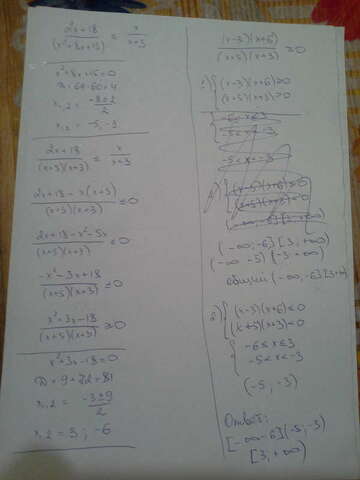 2x+18 / (x²+8x+15) ≤ x / x+3
x²+8x+15=0
D=64-60=4
x1,2 = -8±2 / 2
x1,2 = -5, -3
2x+18 / (x+5)(x+3) ≤ x / x+3
2x+18 - x(x+5) / (x+5)(x+3) ≤0
2x+18-x²-5x / (x+5)(x+3) ≤0
-x²-3x+18 / (x+5)(x+3) ≤0
x²+3x-18 / (x+5)(x+3) ≥0
x²+3x-18=0
D=9+72=81
x1,2 = -3±9 / 2
x1,2 = 3; -6
(x-3)(x+6) / (x+5)(x+3) ≥0
(x-3)(x+6)≥0
(x+5)(x+3)>0
-6≤x≤3
-5<x<-3
-5<x<-3
(-∞;-6][3;+∞)
(-∞ -5)(-3 +∞)
общий (-∞,-6][3+∞)
2) { (x-3)(x+6)≤0
(x+5)(x+3)<0
{ -6≤x≤3
-5<x<-3
(-5, -3)
Ответ:
[-∞ -6](-5;-3)
[3;+∞)